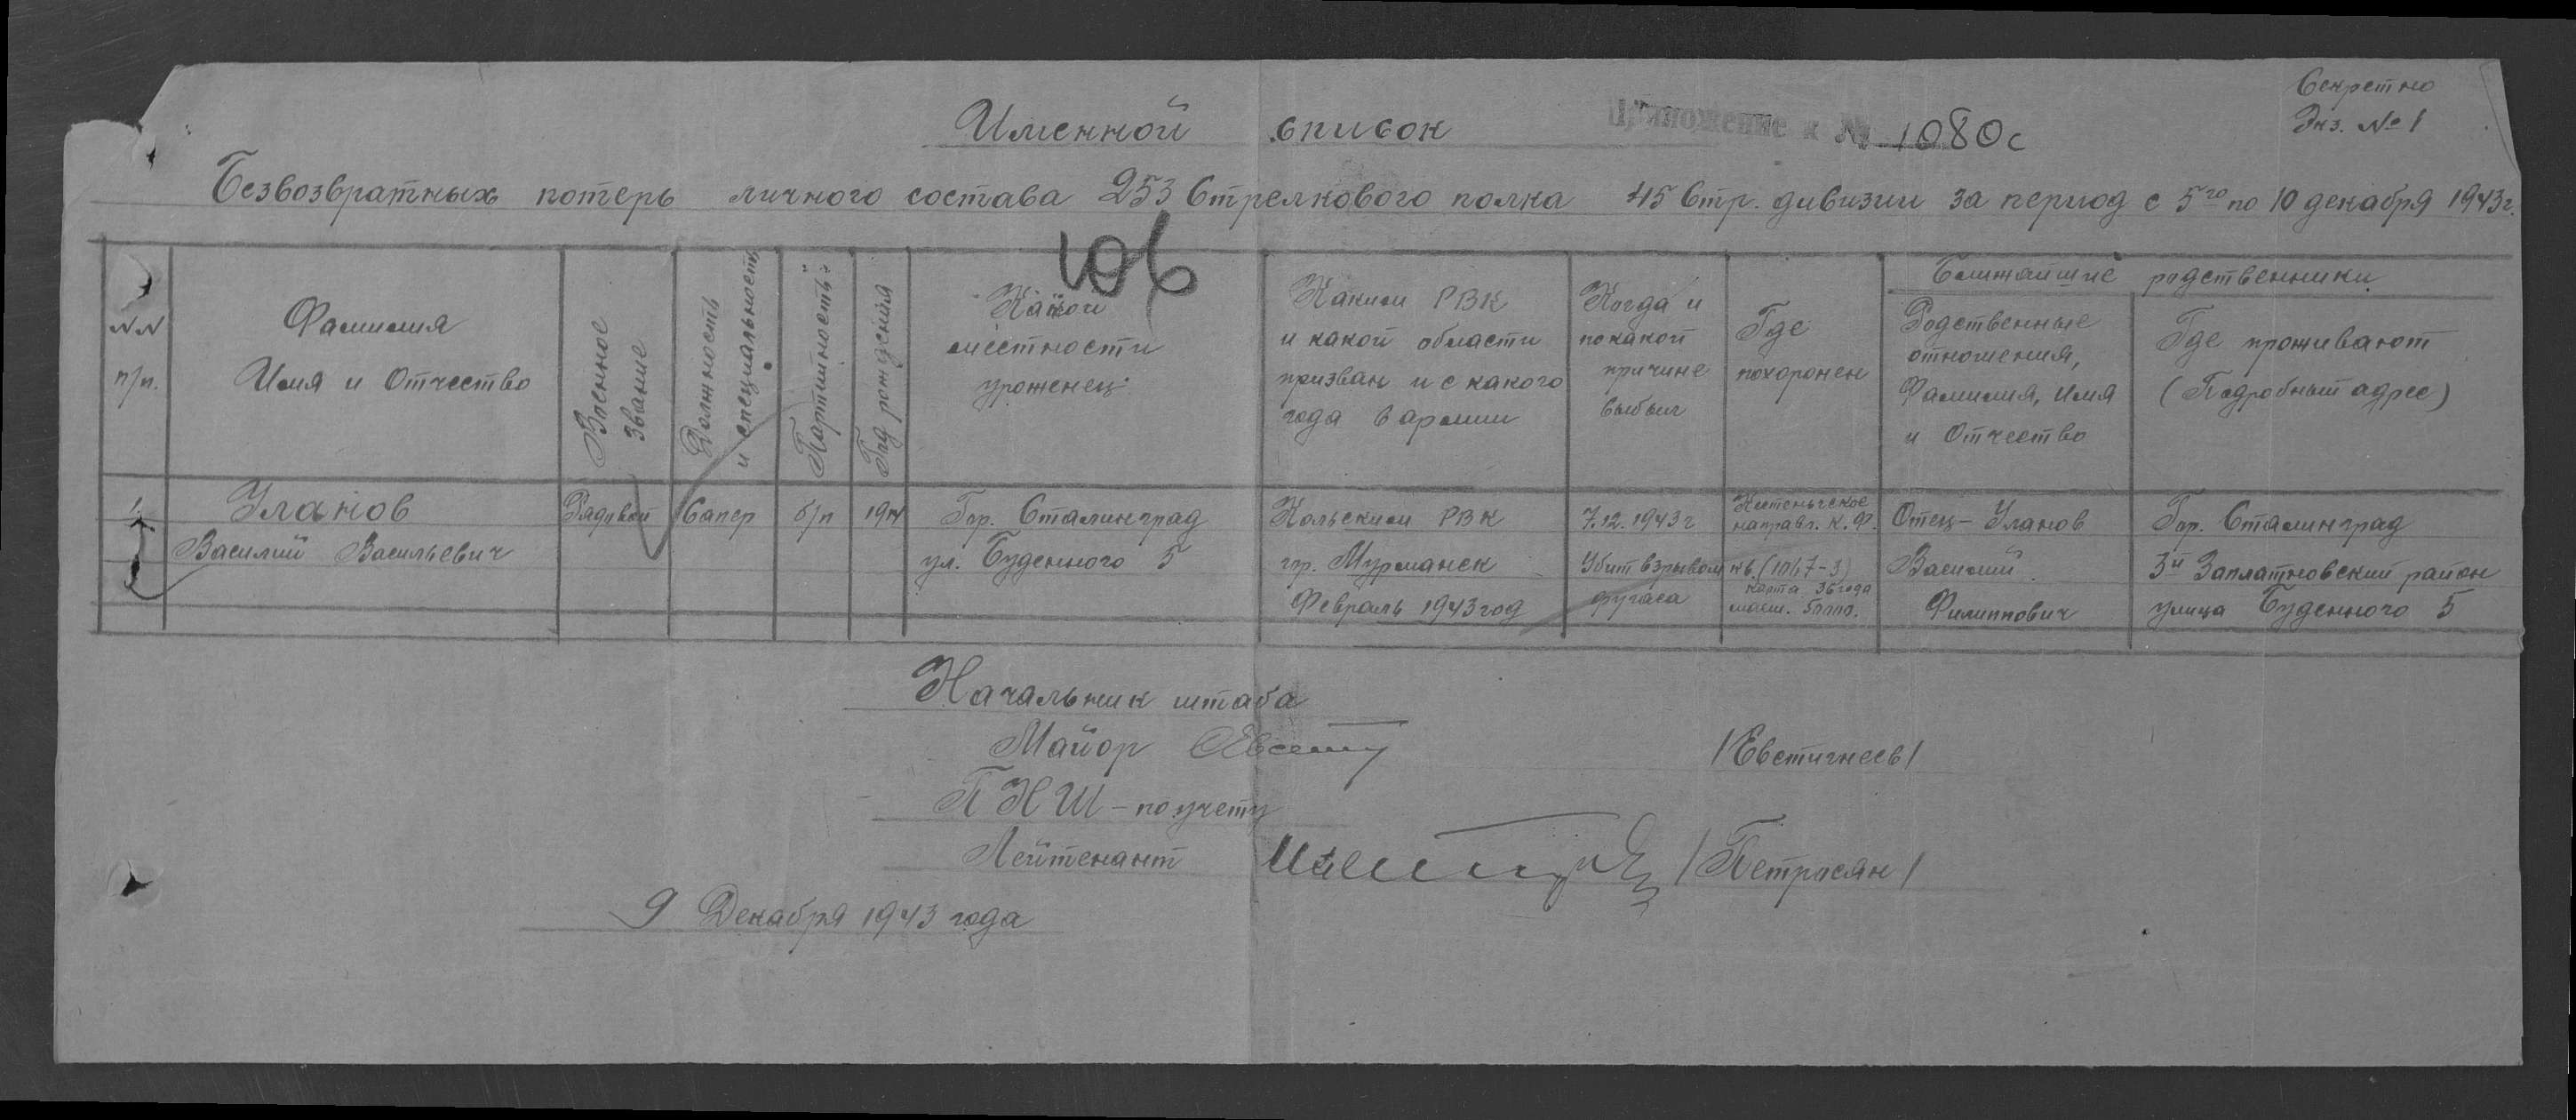 Секретно
Экз. № 1
Именной список
Приложение к № 1080с
Безвозвратных потерь личного состава 253 Стрелкового полка 45 Стр. дивизии за период с 5го по 10 декабря 1943г.
106
NN
п/п.
Фамилия
Имя и Отчество
Военное
звание
Должность
и специальность
Партийность
Год рождения
Какой
местности
уроженец
Каким РВК
и какой области
призван и с какого
года в армии
Когда и
по какой
причине
выбыл
Где
похоронен
Ближайшие родственники
Родственные
отношения,
Фамилия, Имя
и Отчество
Где проживают
(Подробный адрес)
1.
Уланов
Василий Васильевич
Рядовой
Сапер
б/п
Гор. Сталинград
ул. Буденного 5
Кольским РВК
гор. Мурманск
Февраль 1943 год
7.12.1943г
Убит взрывом
фугаса
направл. К.Ф.
карта 36 года
Отец - Уланов
Василий
Филиппович
Гор. Сталинград
3й Заплатновский район
улица Буденного 5
Начальник штаба
Майор
/Евстигнеев/
ПНШ - по учету
Лейтенант
/Петросян/
9 Декабря 1943 года